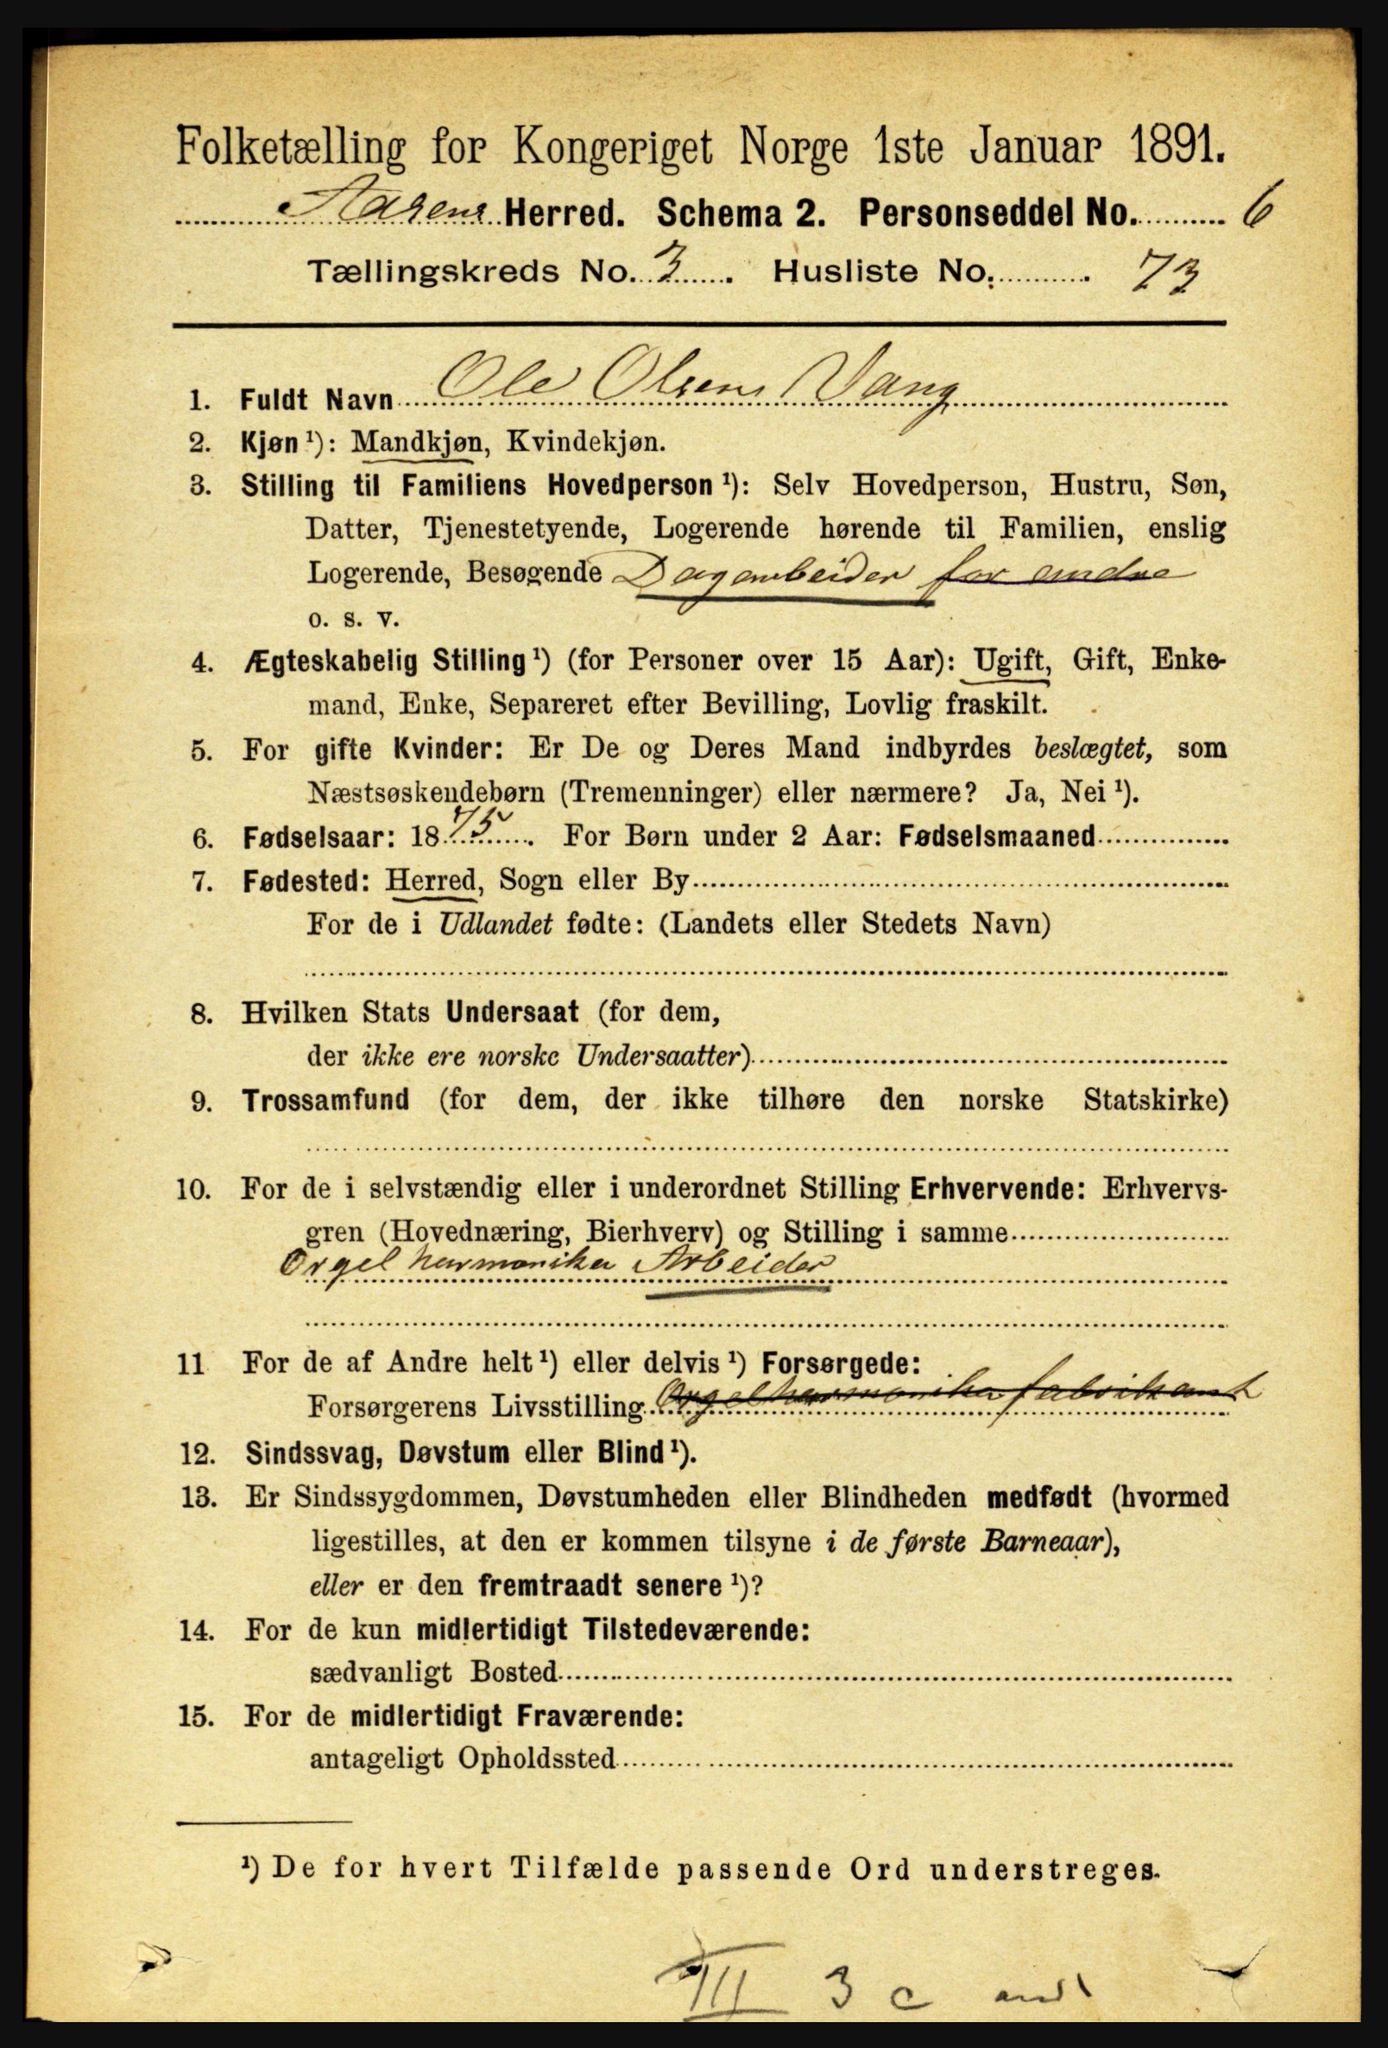 Folketælling for Kongeriget Norge 1ste Januar 1891.
Aasens Herred. Schema 2. Personseddel No. 6
Tællingskreds No. 3. Husliste No. 73
1. Fuldt Navn Ole Olsen Vang
2. Kjøn ¹): Mandkjøn, Kvindekjøn.
3. Stilling til Familiens Hovedperson ¹): Selv Hovedperson, Hustru, Søn,
Datter, Tjenestetyende, Logerende hørende til Familien, enslig
Logerende, Besøgende Dagarbeider for andre
o. s. v.
4. Ægteskabelig Stilling ¹) (for Personer over 15 Aar): Ugift, Gift, Enke-
mand, Enke, Separeret efter Bevilling, Lovlig fraskilt.
5. For gifte Kvinder: Er De og Deres Mand indbyrdes beslægtet, som
Næstsøskendebørn (Tremenninger) eller nærmere? Ja, Nei ¹).
6. Fødselsaar: 1875. For Børn under 2 Aar: Fødselsmaaned
7. Fødested: Herred, Sogn eller By
For de i Udlandet fødte: (Landets eller Stedets Navn)
8. Hvilken Stats Undersaat (for dem,
der ikke ere norske Undersaatter)
9. Trossamfund (for dem, der ikke tilhøre den norske Statskirke)
10. For de i selvstændig eller i underordnet Stilling Erhvervende: Erhvervs-
gren (Hovednæring, Bierhverv) og Stilling i samme
Orgel harmonika Arbeider
11 For de af Andre helt ¹) eller delvis ¹) Forsørgede:
Forsørgerens Livsstilling Orgelharmonika fabrikant
12. Sindssvag, Døvstum eller Blind ¹).
13. Er Sindssygdommen, Døvstumheden eller Blindheden medfødt (hvormed
ligestilles, at den er kommen tilsyne i de første Barneaar),
eller er den fremtraadt senere ¹)?
14. For de kun midlertidigt Tilstedeværende:
sædvanligt Bosted
15. For de midlertidigt Fraværende:
antageligt Opholdssted
¹) De for hvert Tilfælde passende Ord understreges.
III 3 c